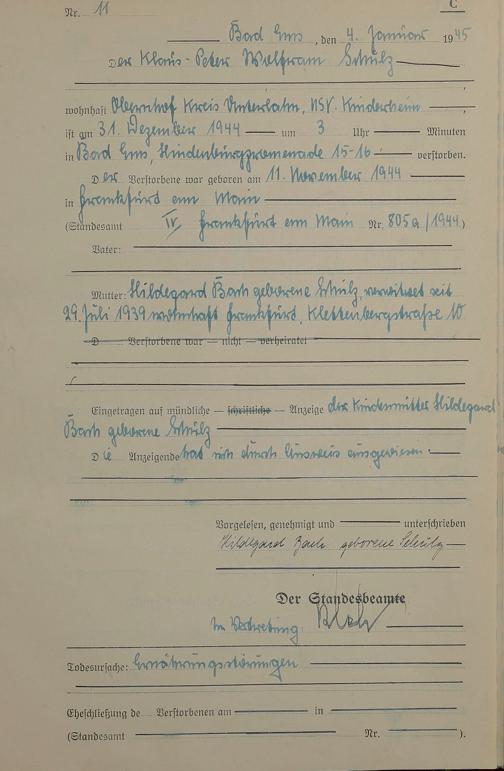 Nr. 11
C
Bad Ems, den 4. Januar 1945
Der Klaus-Peter Wolfram Schulz
wohnhaft Obernhof Kreis Unterlahn, NSV. Kinderheim
ist am 31. Dezember 1944 um 3 Uhr Minuten
in Bad Ems, Hindenburgpromenade 15-16 verstorben.
Der Verstorbene war geboren am 11. November 1944
in Frankfurt am Main
(Standesamt IV Frankfurt am Main Nr. 805a/1944)
Vater:
Mutter: Hildegard geborene Schulz, verwitwet seit
29. Juli 1939 wohnhaft Frankfurt, Klettenbergstraße 10
D Verstorbene war — nicht — verheiratet
Eingetragen auf mündliche — schriftliche — Anzeige der Kindesmutter Hildegard
geborene Schulz
Die Anzeigende hat sich durch Ausweis ausgewiesen.
Vorgelesen, genehmigt und unterschrieben
Hildegard geborene Schulz
Der Standesbeamte
In Vertretung
Todesursache: Ernährungsstörungen
Eheschließung de Verstorbenen am in
(Standesamt Nr. ).